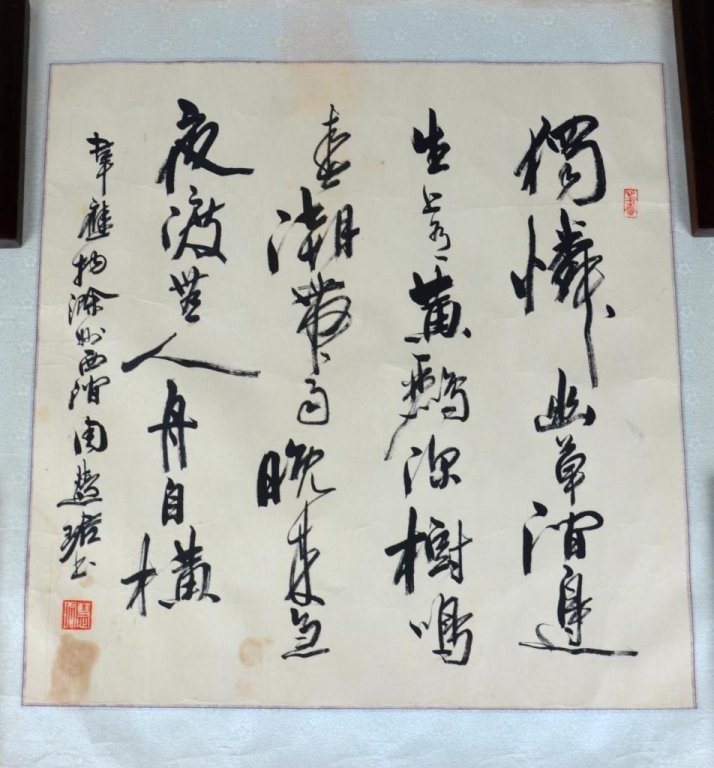 獨憐幽草澗邊
生上有黃鸝深樹鳴
春潮帶雨晚來急
夜渡無人舟自橫
韋應物滁州西澗周慧珺書